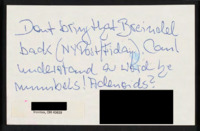 Don't bring that Breindel
back (NY Post/Friday) Can't
understand a word he
mumbels! Adenoids?